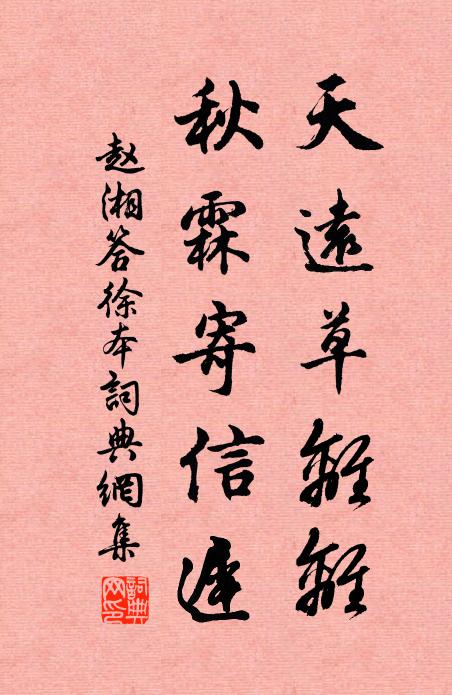 天遠草離離
秋霖寄信遲
赵湘答徐本詞典網集
詞典
网印